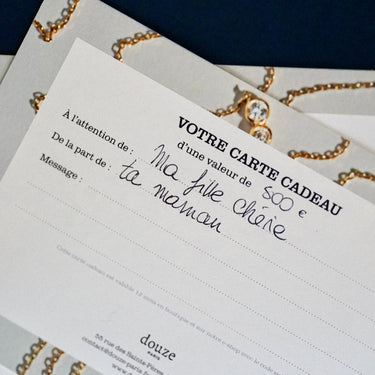 VOTRE CARTE CADEAU
d'une valeur de 500 €
À l'attention de : Ma fille chérie
De la part de : ta maman
Message :
Cette carte cadeau est valable 12 mois en boutique et sur notre e-shop
douze
PARIS
55 rue des Saints-Pères
contact@douze-paris.